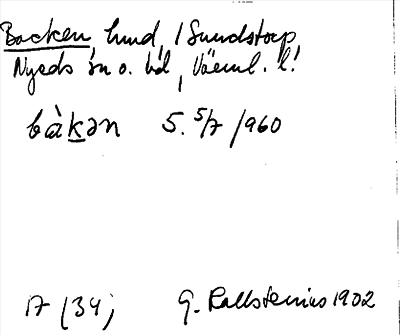 Backen, hmd, i Sundstorp,
Nyeds sn o. hd, Värml. l.
bàkən 5. 5/7 1960
17 (34;
G. Kallstenius 1902